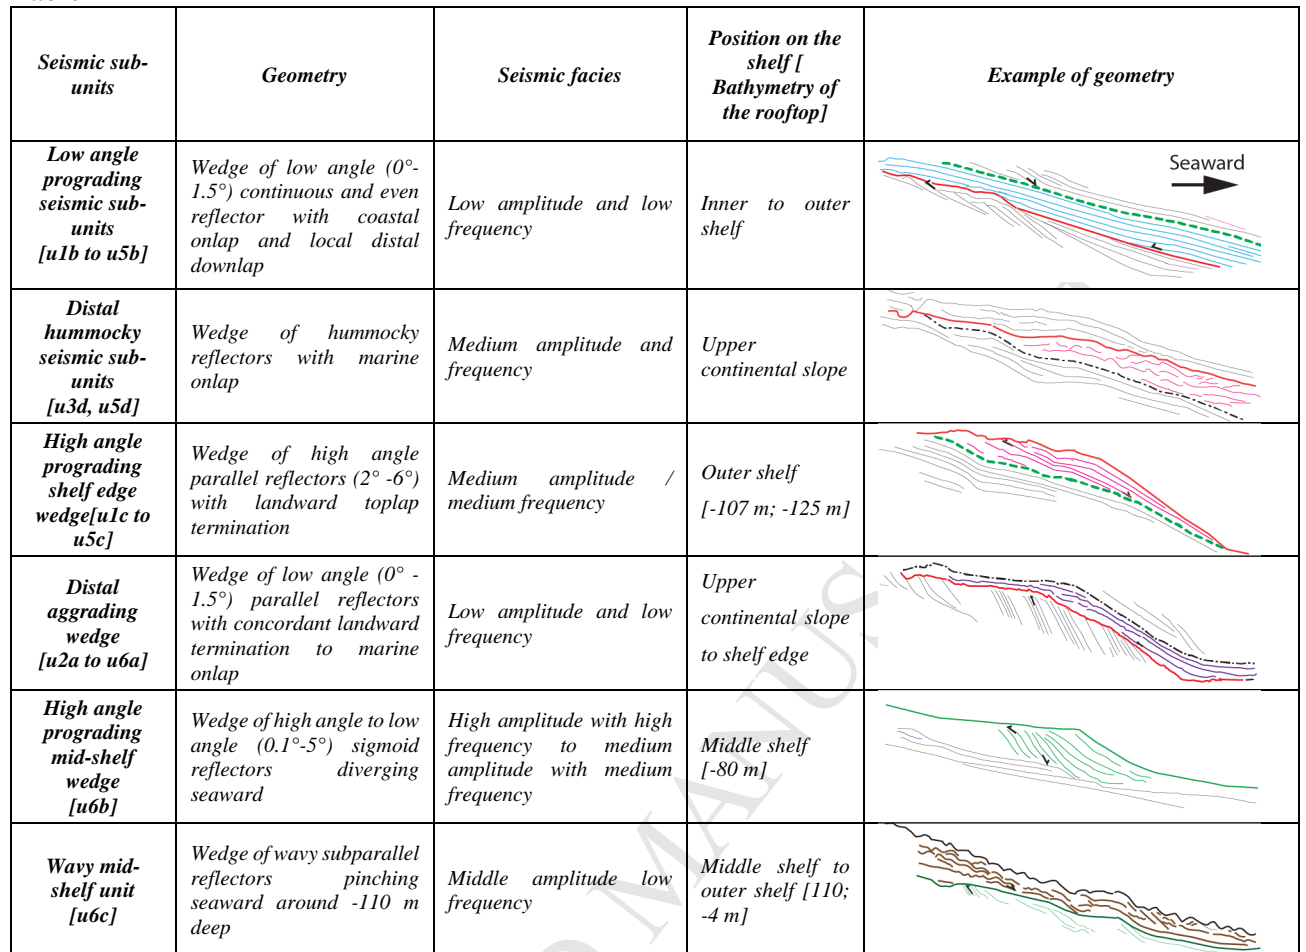 Seismic sub-
units
Geometry
Seismic facies
Position on the
shelf [
Bathymetry of
the rooftop]
Example of geometry
Low angle
prograding
seismic sub-
units
[u1b to u5b]
Wedge of low angle (0°-
1.5°) continuous and even
reflector with coastal
onlap and local distal
downlap
Low amplitude and low
frequency
Inner to outer
shelf
Seaward
Distal
hummocky
seismic sub-
units
[u3d, u5d]
Wedge of hummocky
reflectors with marine
onlap
Medium amplitude and
frequency
Upper
continental slope
High angle
prograding
shelf edge
wedge[u1c to
u5c]
Wedge of high angle
parallel reflectors (2° -6°)
with landward toplap
termination
Medium amplitude /
medium frequency
Outer shelf
[-107 m; -125 m]
Distal
aggrading
wedge
[u2a to u6a]
Wedge of low angle (0° -
1.5°) parallel reflectors
with concordant landward
termination to marine
onlap
Low amplitude and low
frequency
Upper
continental slope
to shelf edge
High angle
prograding
mid-shelf
wedge
[u6b]
Wedge of high angle to low
angle (0.1°-5°) sigmoid
reflectors diverging
seaward
High amplitude with high
frequency to medium
amplitude with medium
frequency
Middle shelf
[-80 m]
Wavy mid-
shelf unit
[u6c]
Wedge of wavy subparallel
reflectors pinching
seaward around -110 m
deep
Middle amplitude low
frequency
Middle shelf to
outer shelf [110;
-4 m]
MANUS